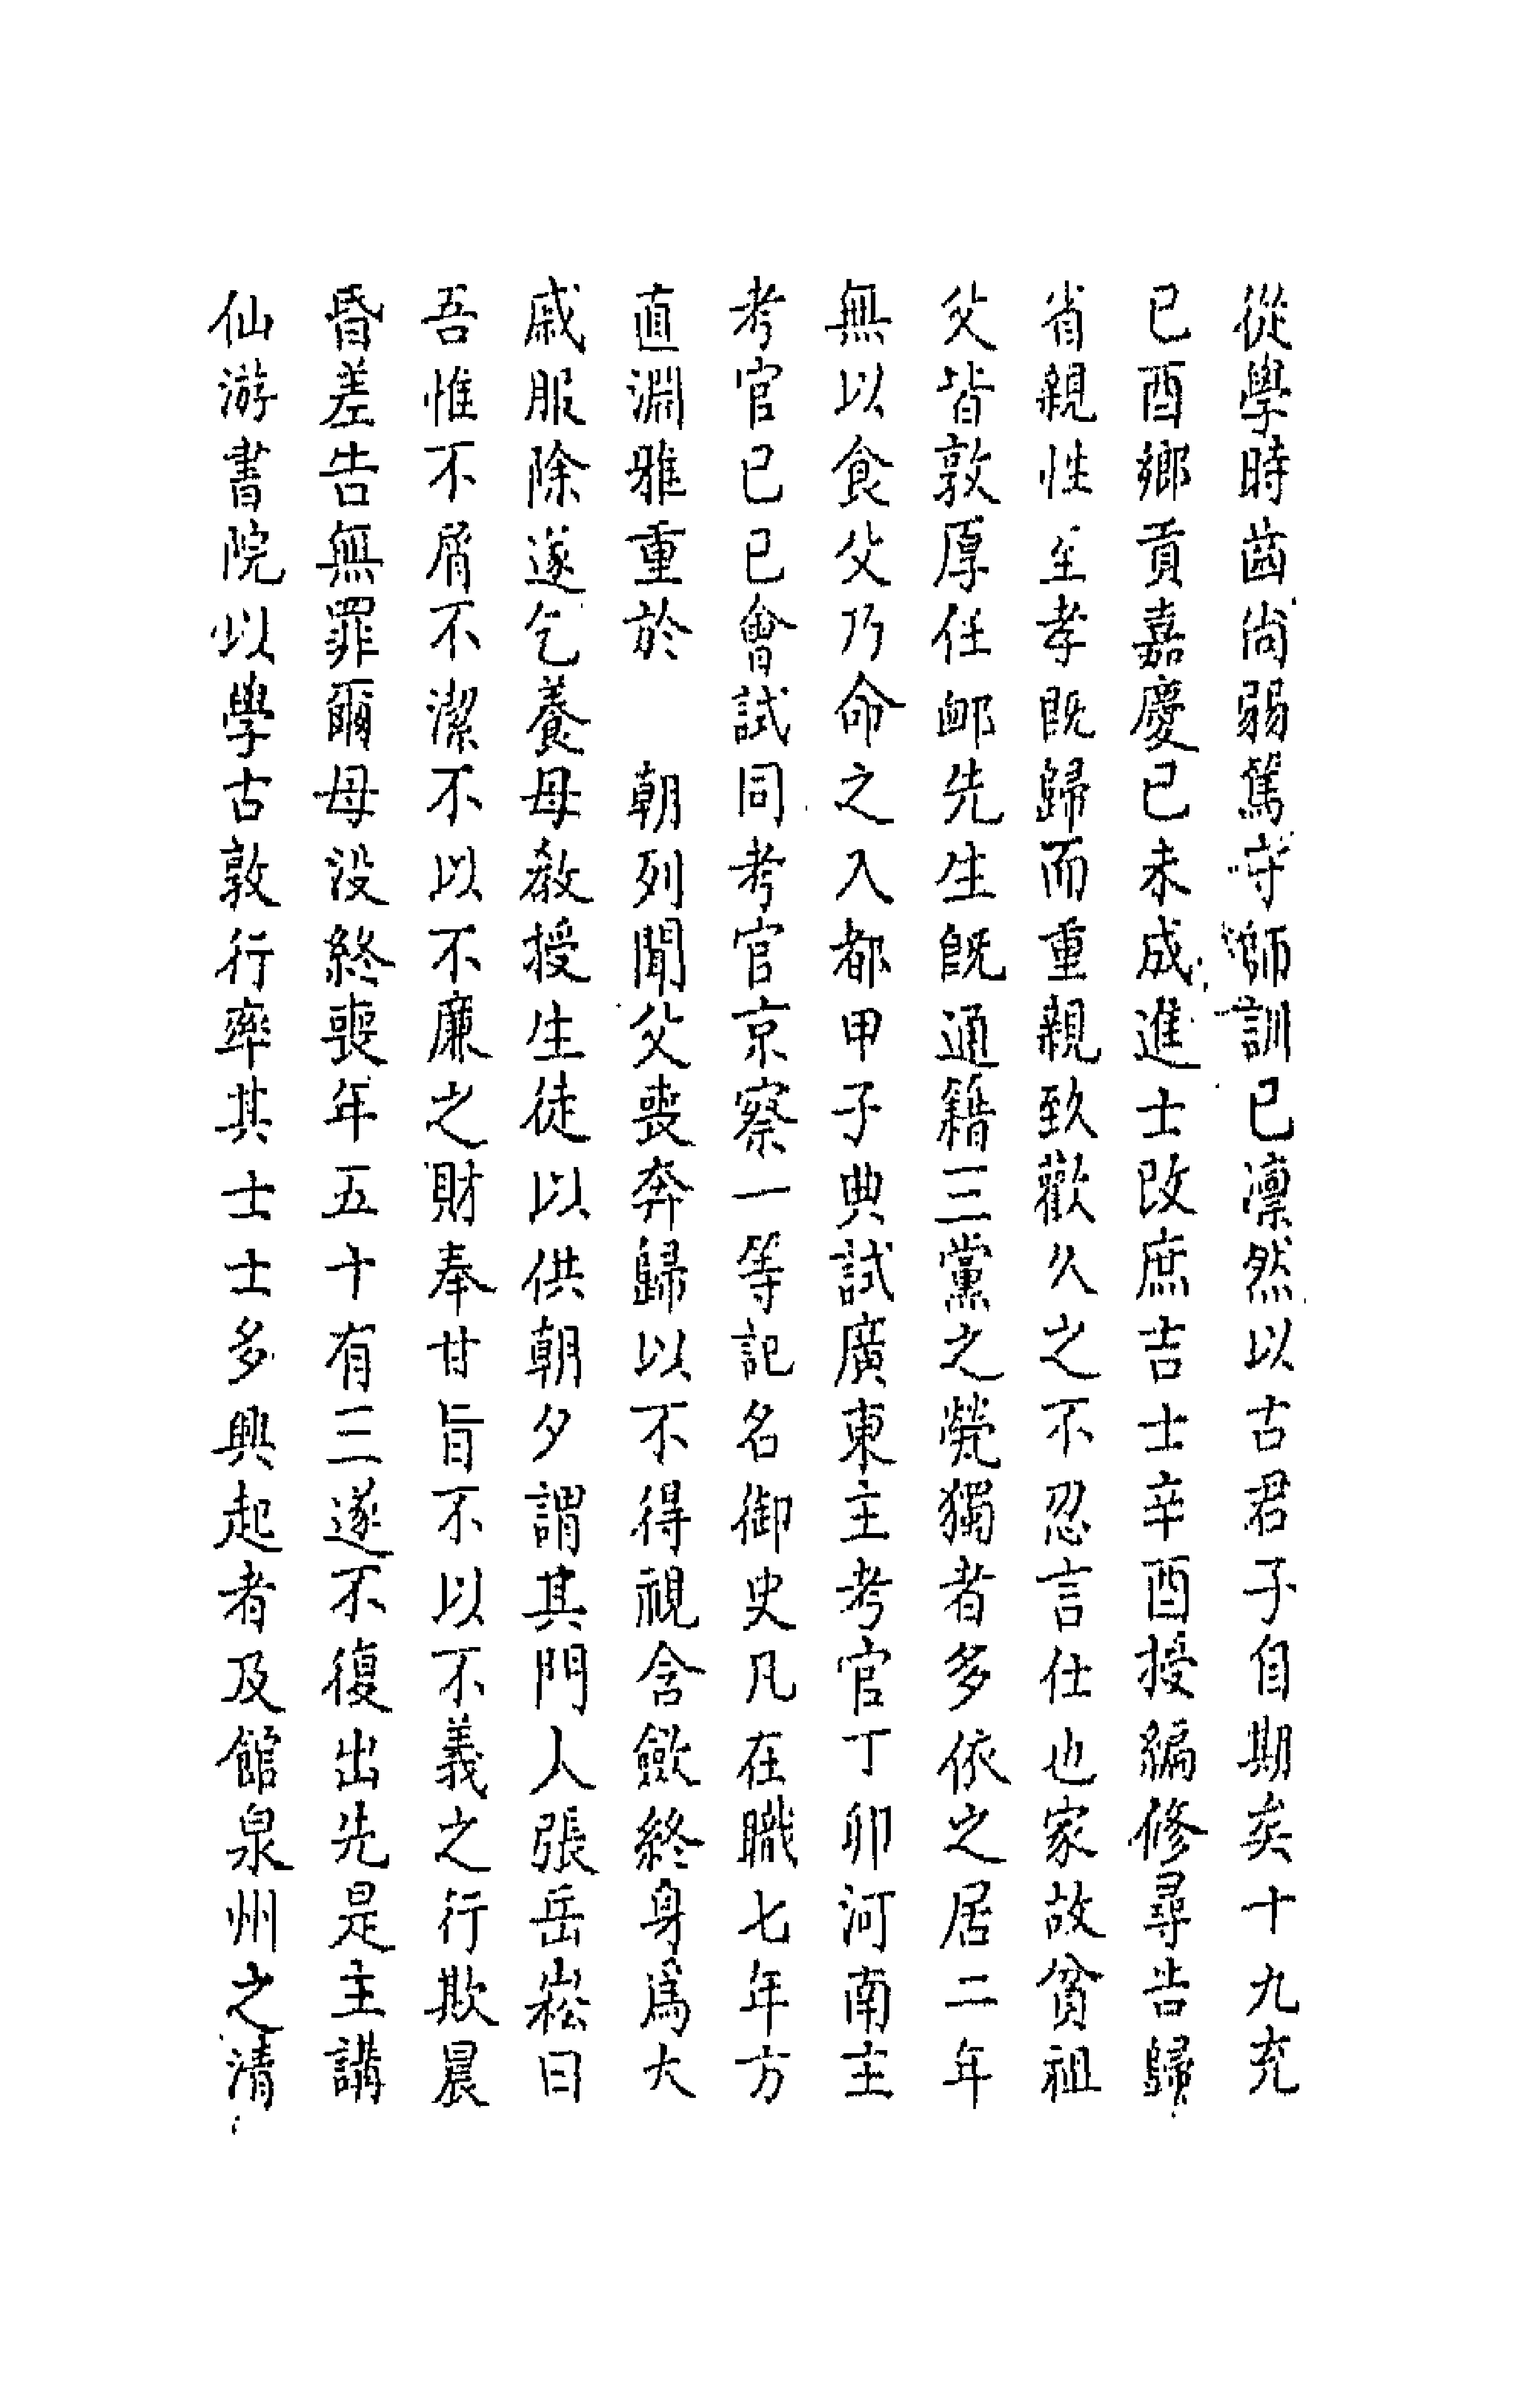 從學時齒尚弱篤守師訓已凛然以古君子自期矣十九充
已酉鄉貢嘉慶已未成進士改庶吉士辛酉授編修尋告歸
省親性至孝既歸而重親致歡久之不忍言仕也家故貧祖
父皆敦厚任卹先生既通籍三黨之煢獨者多依之居二年
無以食父乃命之入都甲子典試廣東主考官丁卯河南主
考官已已會試同考官京察一等記名御史凡在職七年方
直淵雅重於　朝列聞父喪奔歸以不得視含斂終身爲大
戚服除遂乞養母教授生徒以供朝夕謂其門人張岳崧曰
吾惟不屑不潔不以不廉之財奉甘旨不以不義之行欺晨
昏差告無罪爾母没終喪年五十有三遂不復出先是主講
仙游書院以學古敦行率其士士多興起者及館泉州之清